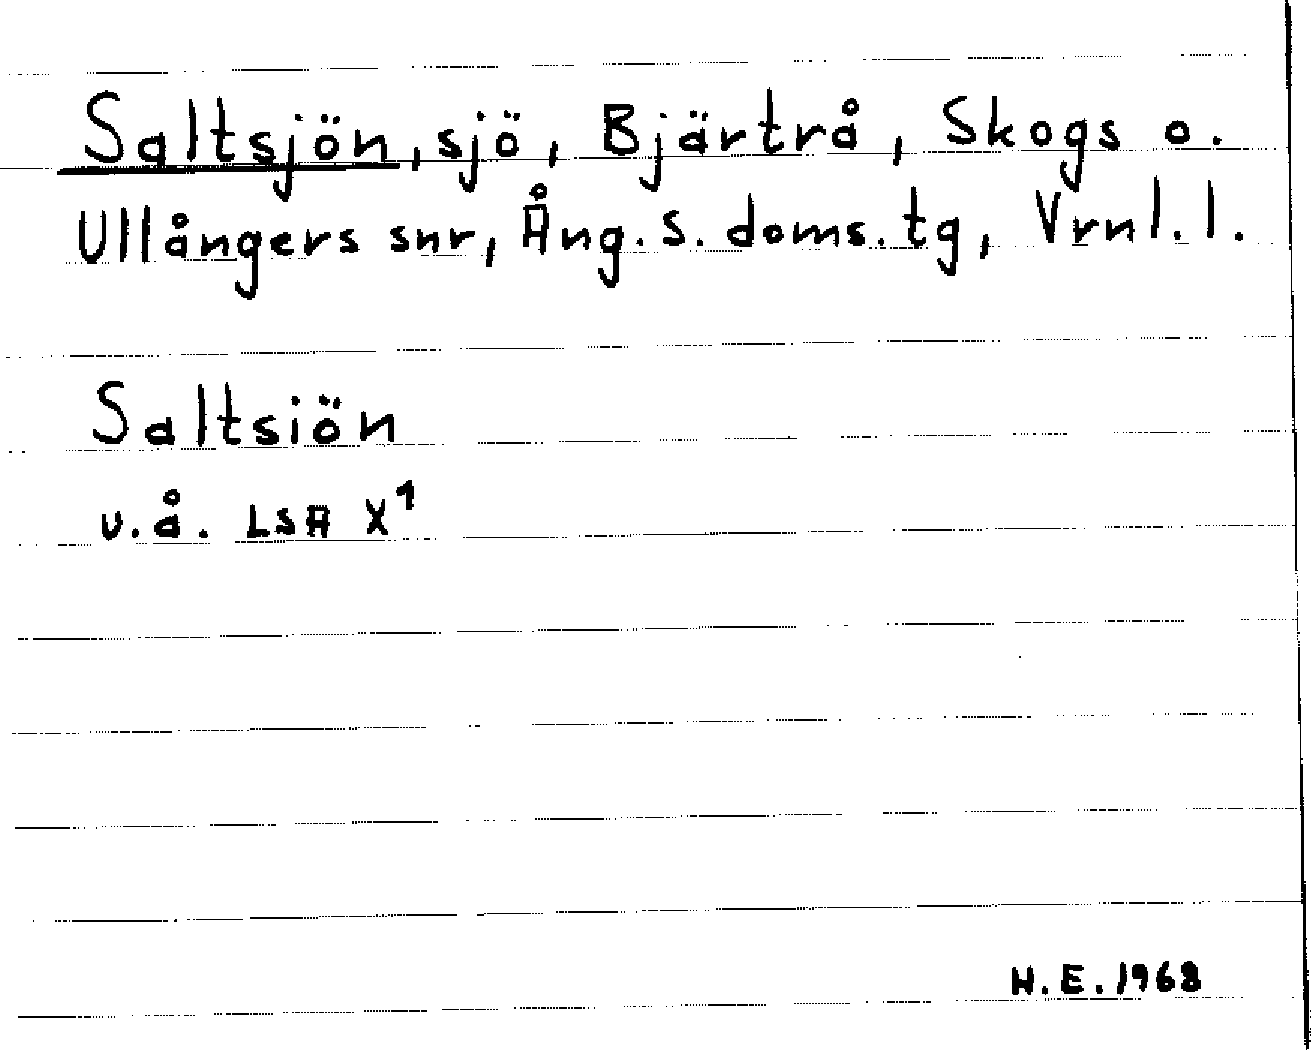 Saltsjön, sjö, Bjärtrå, Skogs o.
Ullångers snr, Ång. s. doms. tg, Vrnl. l.
Saltsiön
u.å. LSA X¹
H.E. 1968